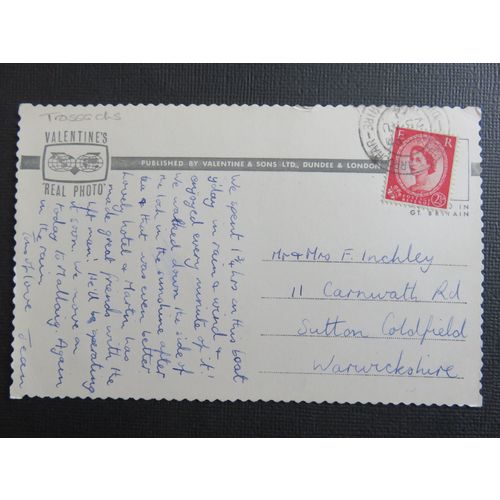 Trossachs
VALENTINE'S
"REAL PHOTO"
PUBLISHED BY VALENTINE & SONS LTD., DUNDEE & LONDON
E R
2½D
D IN
GT. BRITAIN
We spent 1¾ hrs on this boat
y'day in rain & wind &
enjoyed every minute of it!
We walked down the side of
the loch in the sunshine after
tea & that was even better
Lovely hotel & Martin has
made great friends with the
lift man! He'll be operating
it soon. We move on
today to Mallaig. Again
in the rain.
Much love Jean
Mr & Mrs F. Inchley
11 Carnwath Rd
Sutton Coldfield
Warwickshire